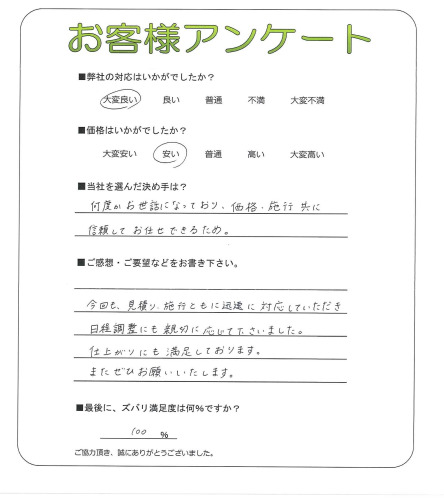 お客様アンケート
■弊社の対応はいかがでしたか?
大変良い 良い 普通 不満 大変不満
■価格はいかがでしたか?
大変安い 安い 普通 高い 大変高い
■当社を選んだ決め手は?
何度かお世話になっており、価格・施行 共に
信頼して お任せできるため。
■ご感想・ご要望などをお書き下さい。
今回も、見積り、施行ともに迅速に対応していただき
日程調整にも親切に応じて下さいました。
仕上がりにも満足しております。
またぜひお願いいたします。
■最後に、ズバリ満足度は何%ですか?
100 %
ご協力頂き、誠にありがとうございました。